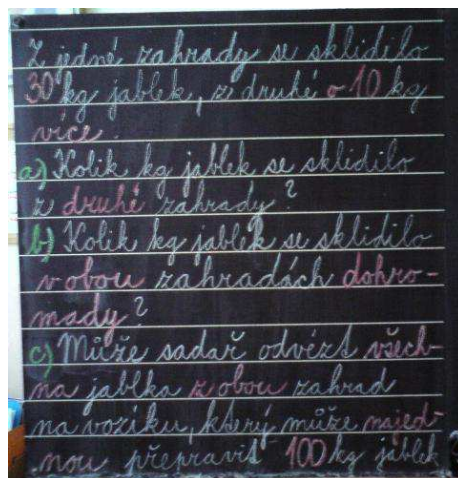 Z jedné zahrady se sklidilo
30 kg jablek, z druhé o 10 kg
více.
a) Kolik kg jablek se sklidilo
z druhé zahrady?
b) Kolik kg jablek se sklidilo
v obou zahradách dohro-
mady?
c) Může sadař odvézt všech-
na jablka z obou zahrad
na vozíku, který může najed-
nou přepravit 100 kg jablek